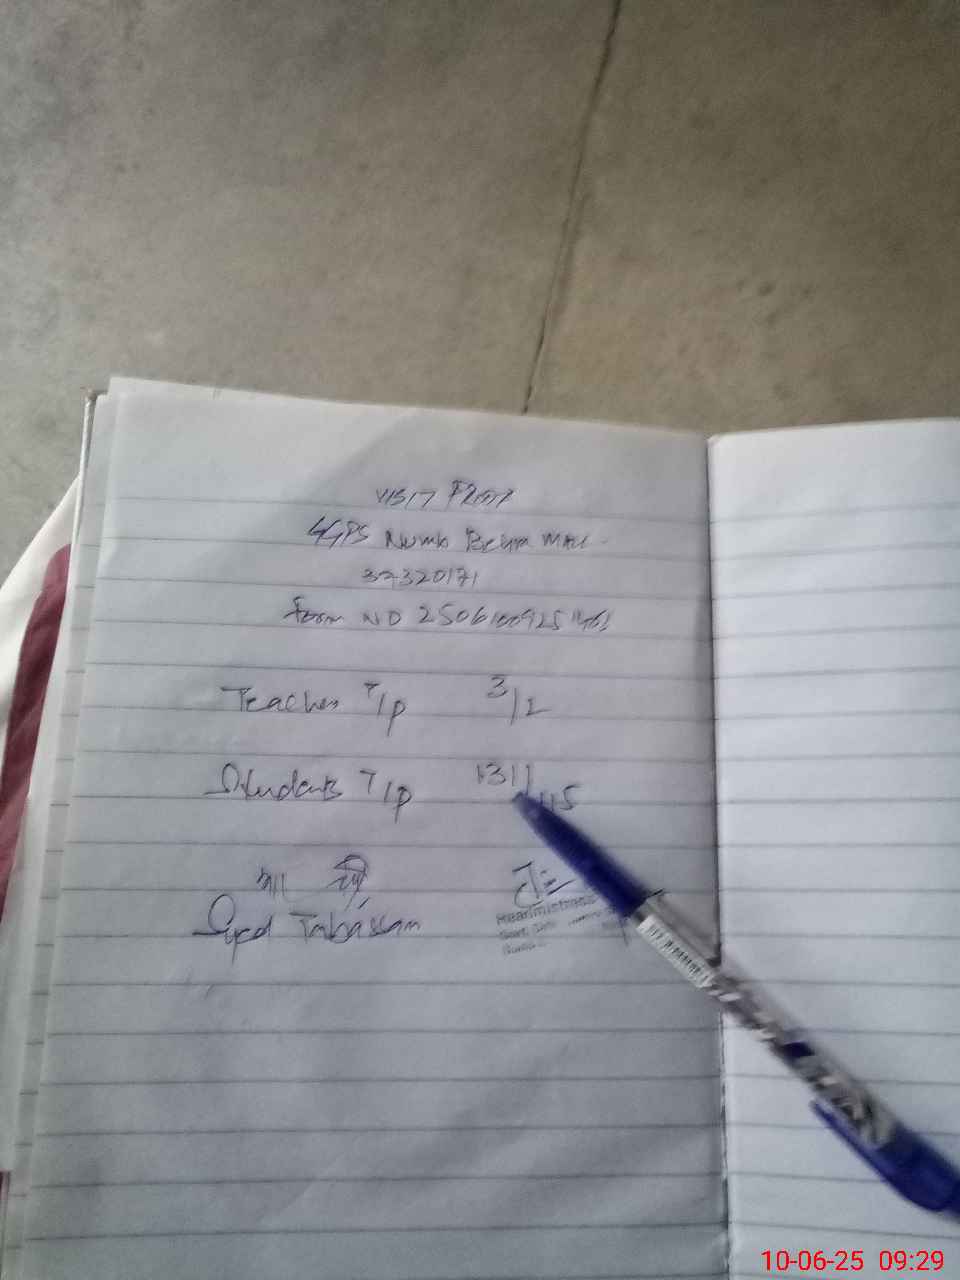 VISIT Proof
GGPS Numb Behra Mall -
37320171
Form NO 2506100925
Teacher T/p 3/2
Students T/p 131/115
Syed Tabassam
Headmistress
10-06-25 09:29